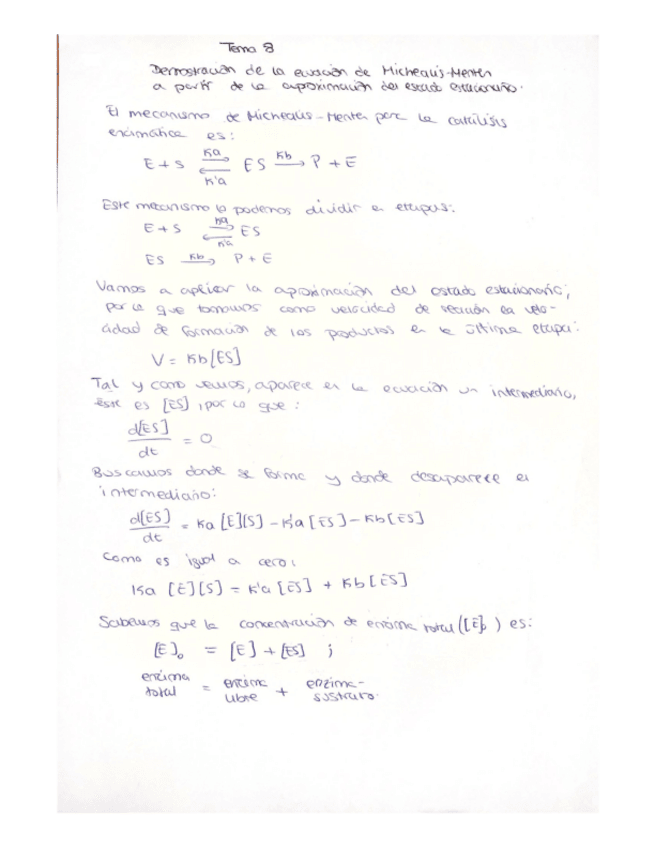 Tema 8
Demostración de la ecuación de Michealis-Menten
a partir de la aproximación del estado estacionario.
El mecanismo de Michealis-Menten para la catálisis
enzimática es:
E + S ⇌ ES → P + E
ka
k'a
kb
Este mecanismo lo podemos dividir en etapas:
E + S ⇌ ES
ka
k'a
ES → P + E
kb
Vamos a aplicar la aproximación del estado estacionario,
por lo que tomamos como velocidad de reacción la velo-
cidad de formación de los productos en la última etapa:
V = kb[ES]
Tal y como vemos, aparece en la ecuación un intermediario,
éste es [ES], por lo que:
d[ES]/dt = 0
Buscamos donde se forma y donde desaparece el
intermediario:
d[ES]/dt = ka [E][S] - k'a [ES] - kb [ES]
Como es igual a cero:
ka [E][S] = k'a [ES] + kb [ES]
Sabemos que la concentración de enzima total ([E]₀) es:
[E]₀ = [E] + [ES] ;
enzima total = enzima libre + enzima-sustrato.